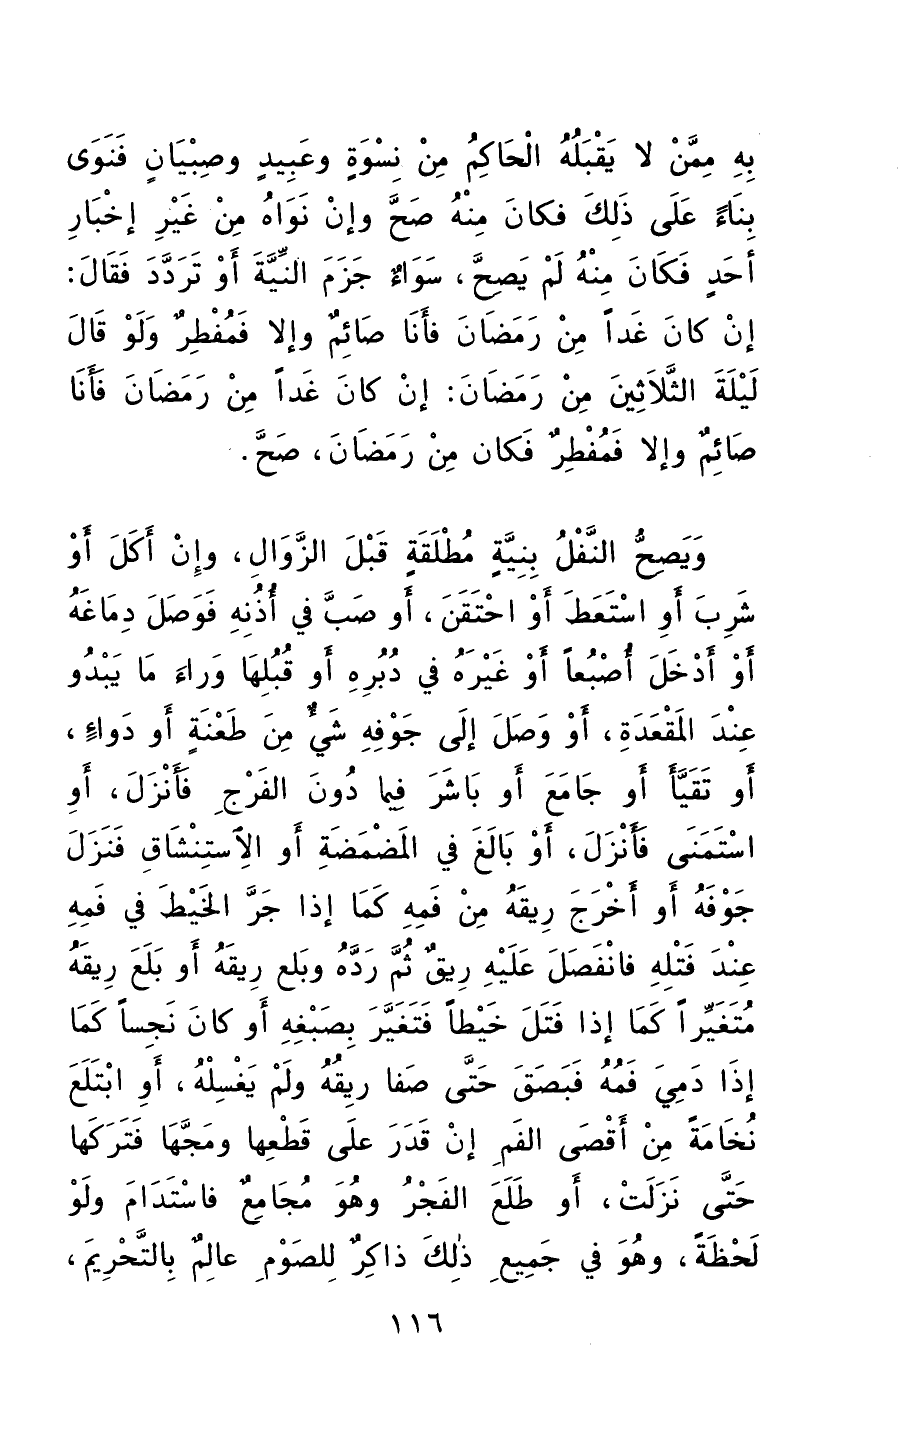 بِهِ مِمَّنْ لا يَقْبَلُهُ الْحَاكِمُ مِنْ نِسْوَةٍ وعَبِيدٍ وصِبْيَانٍ فَنَوَى
بِنَاءً عَلَى ذَلِكَ فكانَ مِنْهُ صَحَّ وإنْ نَوَاهُ مِنْ غَيْرِ إخْبَارِ
أحَدٍ فَكَانَ مِنْهُ لَمْ يَصِحَّ، سَوَاءٌ جَزَمَ النِّيَّةَ أَوْ تَرَدَّدَ فَقَالَ:
إنْ كانَ غَداً مِنْ رَمَضَانَ فأنَا صَائِمٌ وإلا فَمُفْطِرٌ وَلَوْ قَالَ
لَيْلَةَ الثَّلَاثِينَ مِنْ رَمَضَانَ: إنْ كانَ غَداً مِنْ رَمَضَانَ فَأَنَا
صَائِمٌ وإلا فَمُفْطِرٌ فَكان مِنْ رَمَضَانَ، صَحَّ.
وَيَصِحُّ النَّفْلُ بِنِيَّةٍ مُطْلَقَةٍ قَبْلَ الزَّوَالِ، وإِنْ أَكَلَ أَوْ
شَرِبَ أَوِ اسْتَعَطَ أَوْ احْتَقَنَ، أَو صَبَّ في أُذُنِهِ فَوَصَلَ دِمَاغَهُ
أَوْ أَدْخَلَ أُصْبُعاً أَوْ غَيْرَهُ في دُبُرِهِ أَو قُبُلِهَا وَراءَ مَا يَبْدُو
عِنْدَ المَقْعَدَةِ، أَوْ وَصَلَ إلَى جَوْفِهِ شَيٌّ مِنَ طَعْنَةٍ أَو دَواءٍ،
أَو تَقَيَّأَ أَو جَامَعَ أَو بَاشَرَ فِيما دُونَ الفَرْجِ فَأَنْزَلَ، أَوِ
اسْتَمْنَى فَأَنْزَلَ، أَوْ بَالَغَ في المَضْمَضَةِ أَو الإَستِنْشَاقِ فَنَزَلَ
جَوْفَهُ أَو أَخْرَجَ رِيقَهُ مِنْ فَمِهِ كَمَا إذا جَرَّ الخَيْطَ في فَمِهِ
عِنْدَ فَتْلِهِ فانْفَصَلَ عَلَيْهِ رِيقٌ ثُمَّ رَدَّهُ وبَلع رِيقَهُ أَو بَلَعَ رِيقَهُ
مُتَغَيِّراً كَمَا إذا فَتَلَ خَيْطاً فَتَغَيَّرَ بِصَبْغِهِ أَو كانَ نَجِساً كَمَا
إذَا دَمِيَ فَمُهُ فَبَصَقَ حَتَّى صَفا رِيقُهُ ولَمْ يَغْسِلْهُ، أَوِ ابْتَلَعَ
نُخَامَةً مِنْ أَقْصَى الفَمِ إنْ قَدَرَ علَى قَطْعِها ومَجَّهَا فَتَرَكَها
حَتَّى نَزَلَتْ، أَو طَلَعَ الفَجْرُ وهُوَ مُجَامِعٌ فاسْتَدَامَ ولَوْ
لَحْظَةً، وهُوَ في جَمِيعِ ذٰلِكَ ذاكِرٌ لِلصَوْمِ عالِمٌ بِالتَّحْرِيمَ،
١١٦